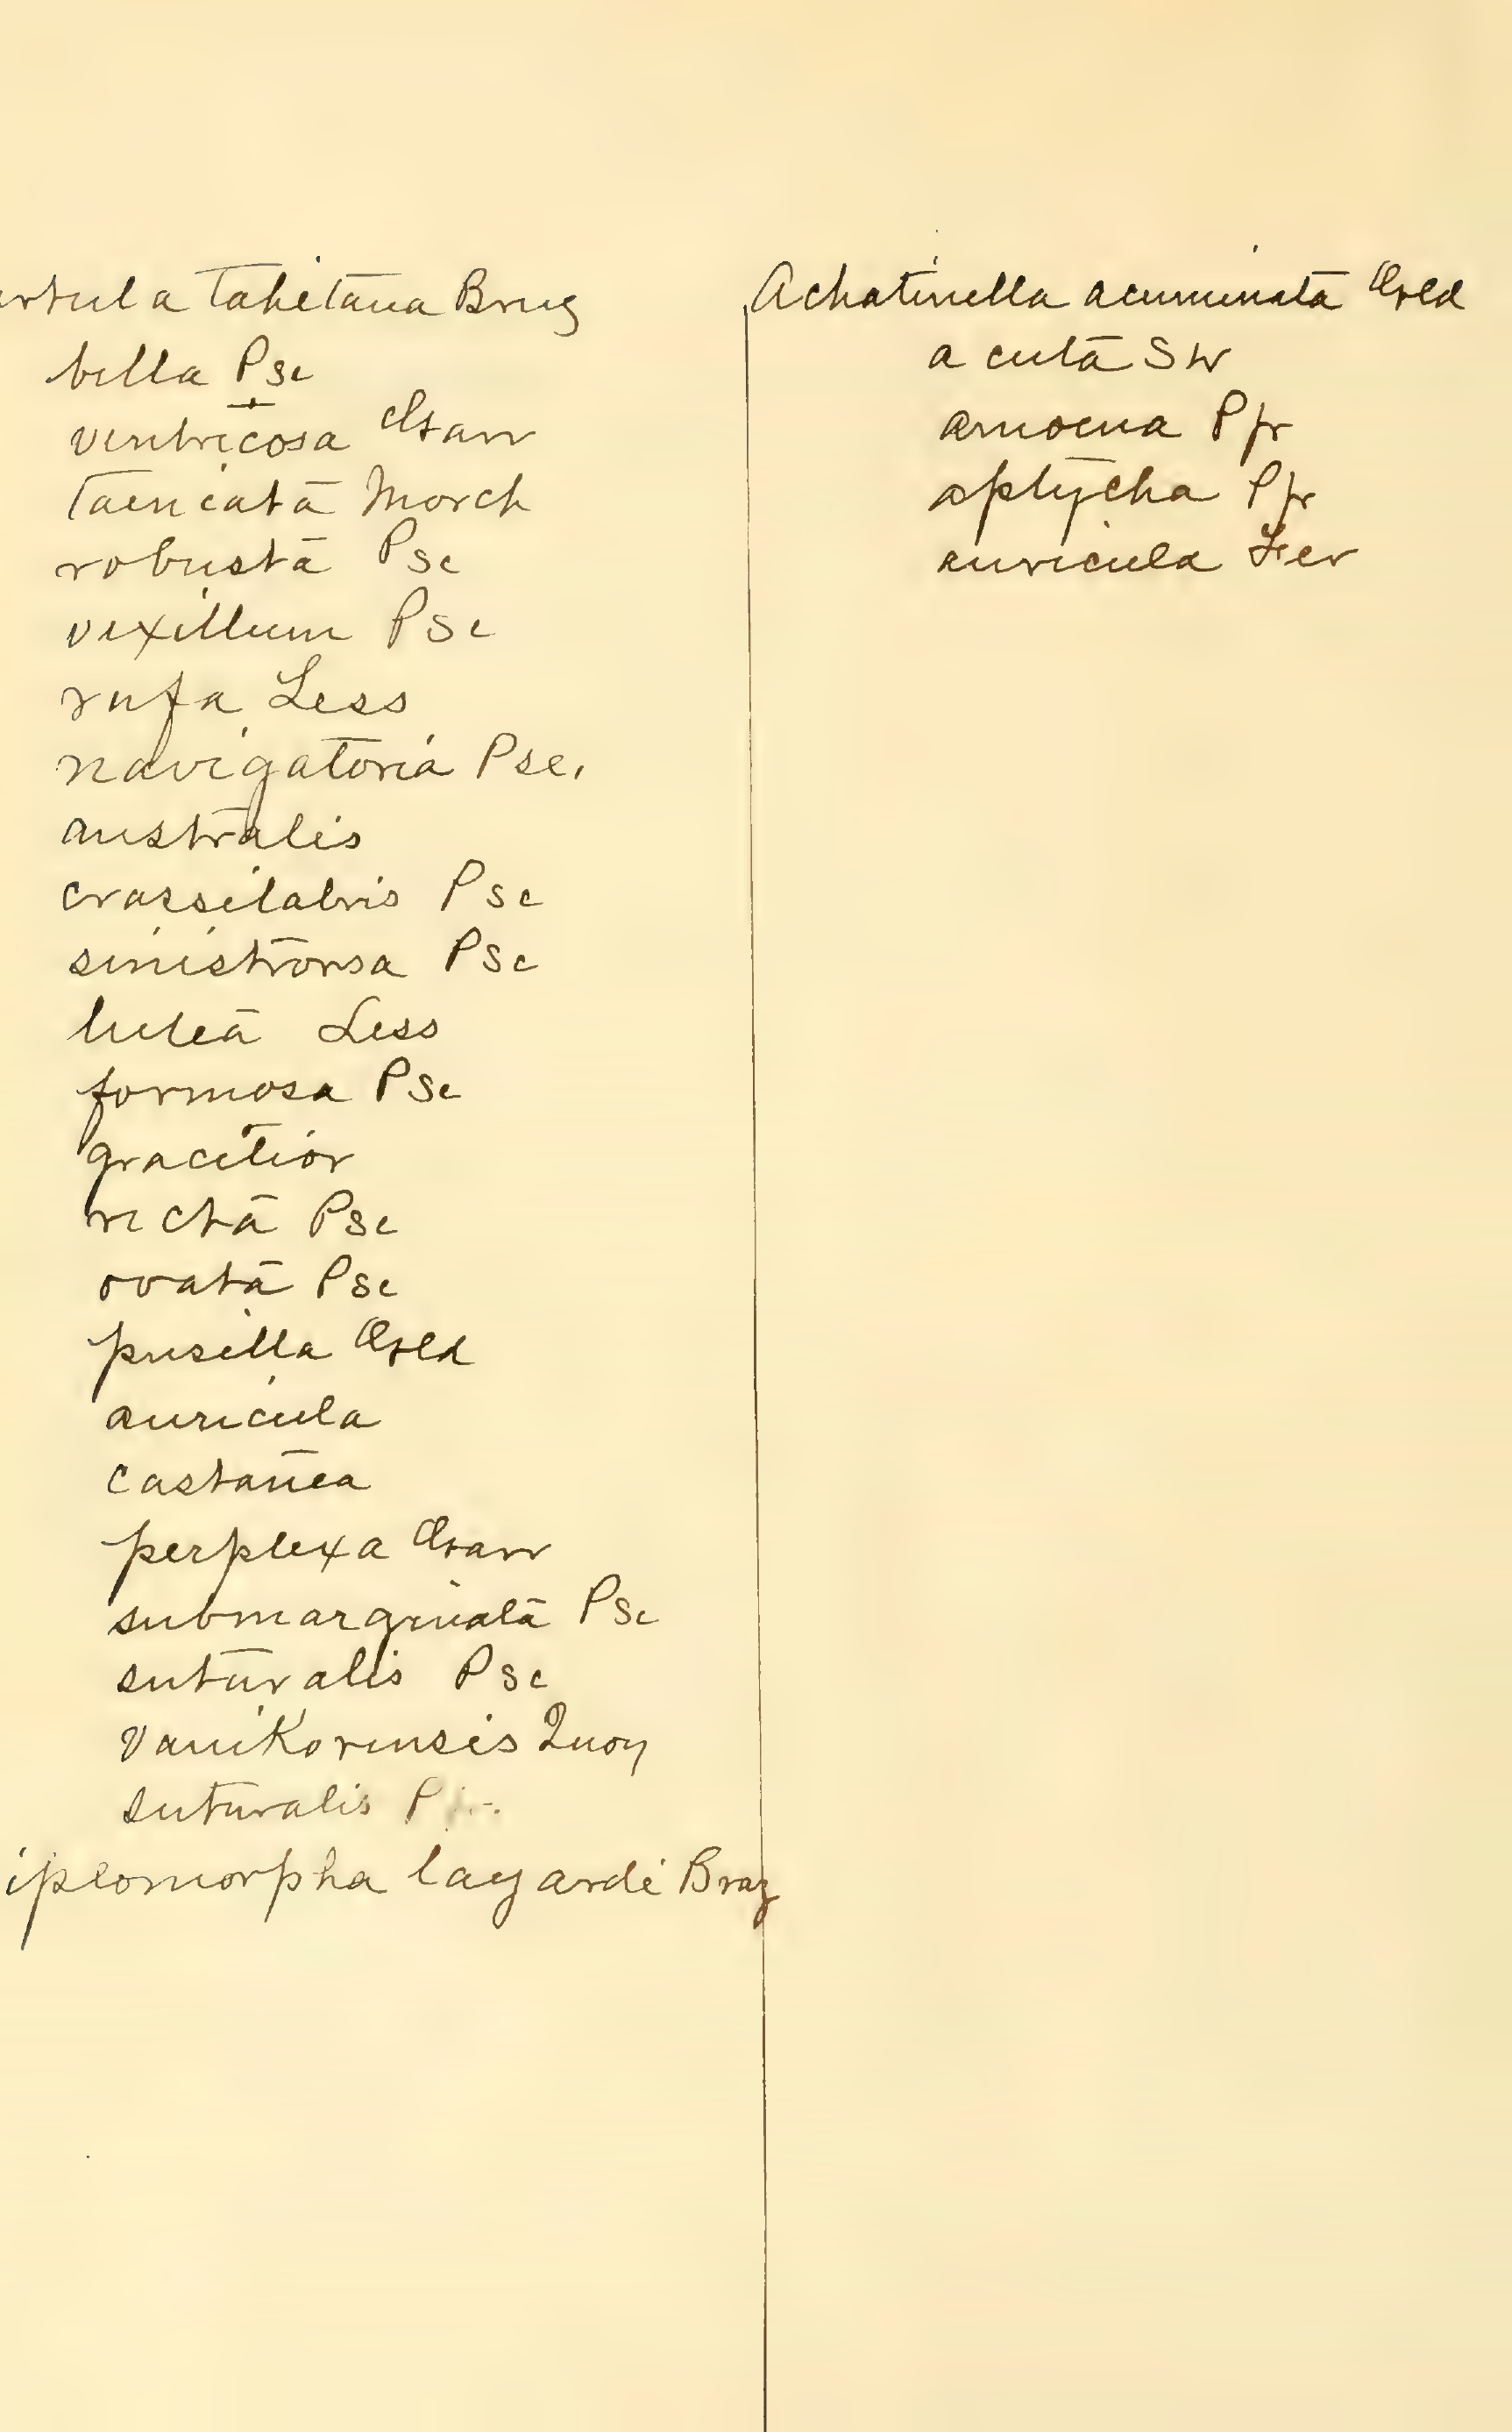 artula Tahitana Brug
bella Psc
ventricosa Garr
Taeniata Morch
robusta Psc
vexillum Psc
rufa Less
navigatoria Pse.
australis
crassilabris Psc
sinistrorsa Psc
lutea Less
formosa Psc
gracilior
recta Psc
ovata Psc
pusilla Gld
auricula
castanea
perplexa Garr
submarginata Psc
suturalis Psc
VaniKorensis Quoy
suturalis
iplomorpha layardi Braz
Achatinella acuminata Gld
acuta Sw
amoena Pfr
aptycha Pfr
auricula Fer